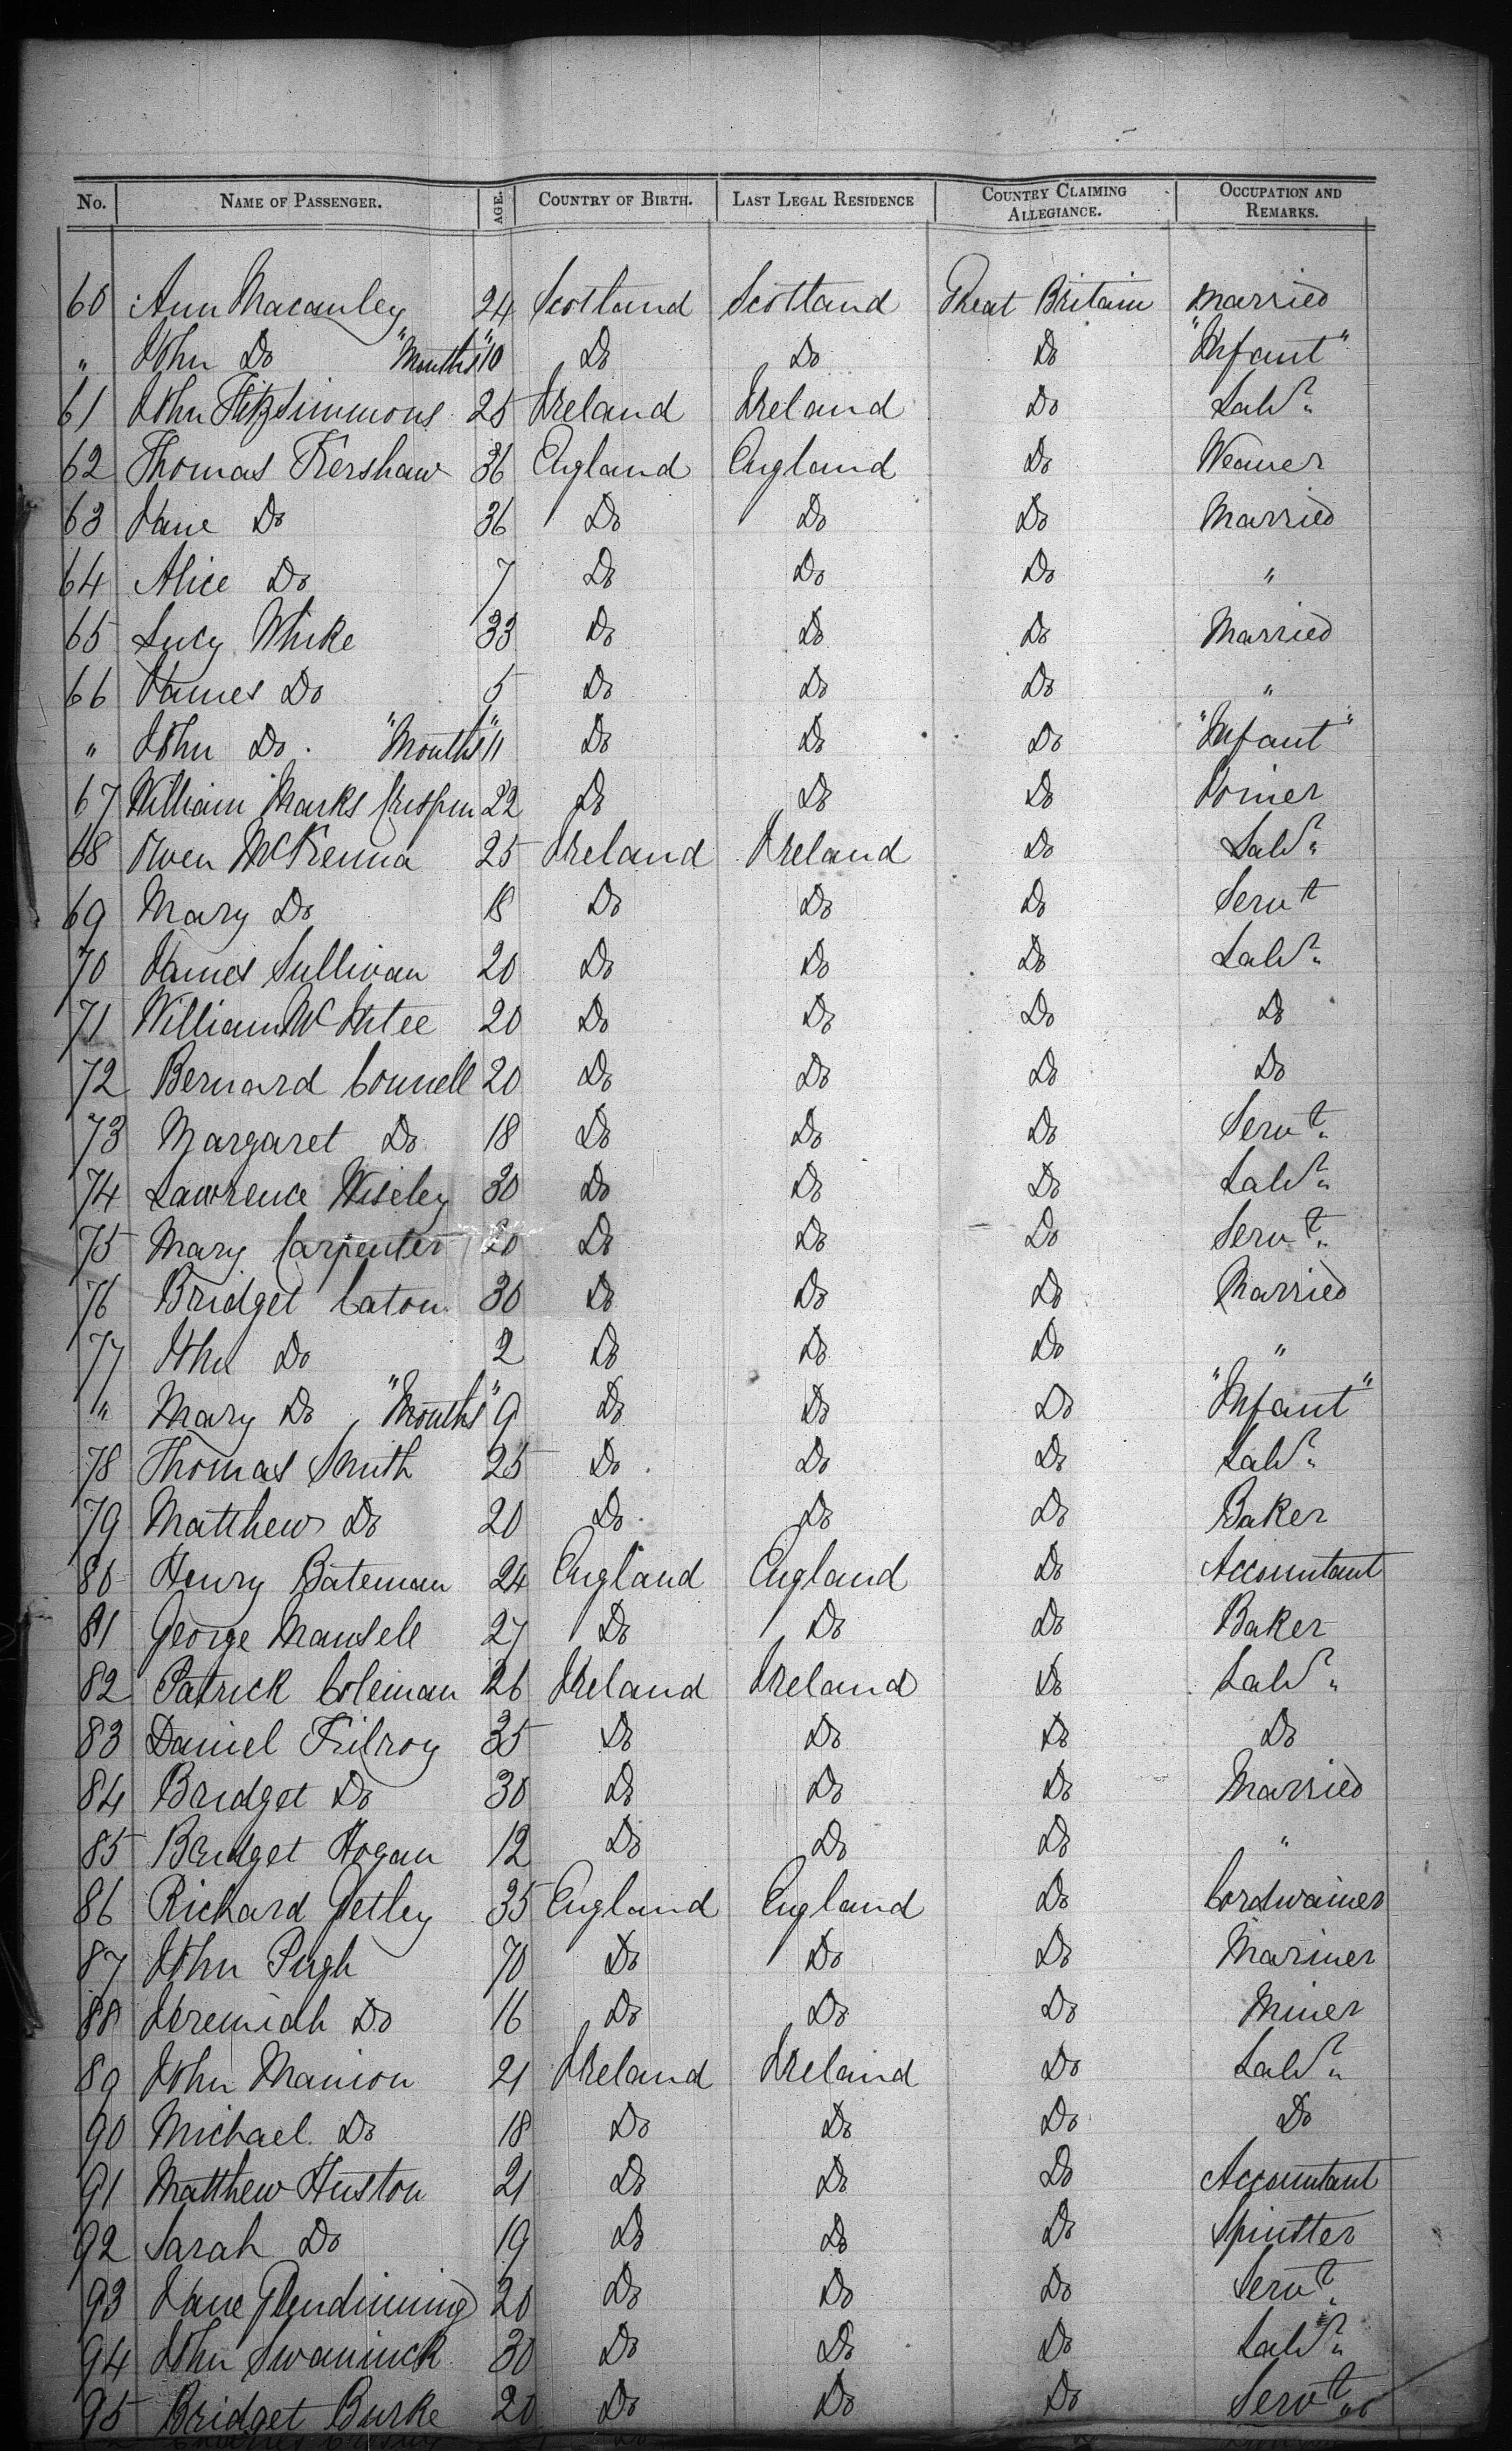 No. NAME OF PASSENGER. AGE. COUNTRY OF BIRTH. LAST LEGAL RESIDENCE COUNTRY CLAIMING ALLEGIANCE. OCCUPATION AND REMARKS.
60 Ann Macauley 24 Scotland Scotland Great Britain Married
" John Do "Months" 10 Do Do Do "Infant"
61 John Fitzsimmons 25 Ireland Ireland Do Labr.
62 Thomas Kershaw 36 England England Do Weaver
63 Jane Do 36 Do Do Do Married
64 Alice Do 7 Do Do Do "
65 Lucy 33 Do Do Do Married
66 James Do 5 Do Do Do "
" John Do. "Months" 11 Do Do Do "Infant"
67 William Marks Crispin 22 Do Do Do Joiner
68 Owen McKenna 25 Ireland Ireland Do Labr.
69 Mary Do 18 Do Do Do Servt
70 James Sullivan 20 Do Do Do Labr.
71 William 20 Do Do Do Do
72 Bernard Connell 20 Do Do Do Do
73 Margaret Do 18 Do Do Do Servt.
74 Lawrence Wiseley 30 Do Do Do Labr.
75 Mary Carpenter 20 Do Do Do Servt.
76 Bridget Caton 30 Do Do Do Married
77 John Do 2 Do Do Do "
" Mary Do "Months" 9 Do Do Do "Infant"
78 Thomas Smith 25 Do Do Do Labr.
79 Matthew Do 20 Do Do Do Baker
80 Henry Bateman 24 England England Do Accountant
81 George Mansell 27 Do Do Do Baker
82 Patrick Coleman 26 Ireland Ireland Do Labr.
83 Daniel Kilroy 35 Do Do Do Do
84 Bridget Do 30 Do Do Do Married
85 Bridget Hogan 12 Do Do Do "
86 Richard Jetley 35 England England Do Cordwainer
87 John Pugh 70 Do Do Do Mariner
88 Jeremiah Do 16 Do Do Do Miner
89 John Manion 21 Ireland Ireland Do Labr.
90 Michael Do 18 Do Do Do Do
91 Matthew Huston 21 Do Do Do Accountant
92 Sarah Do 19 Do Do Do Spinster
93 Jane Glendinning 20 Do Do Do Servt.
94 John Swaninck 30 Do Do Do Labr.
95 Bridget Burke 20 Do Do Do Servt.